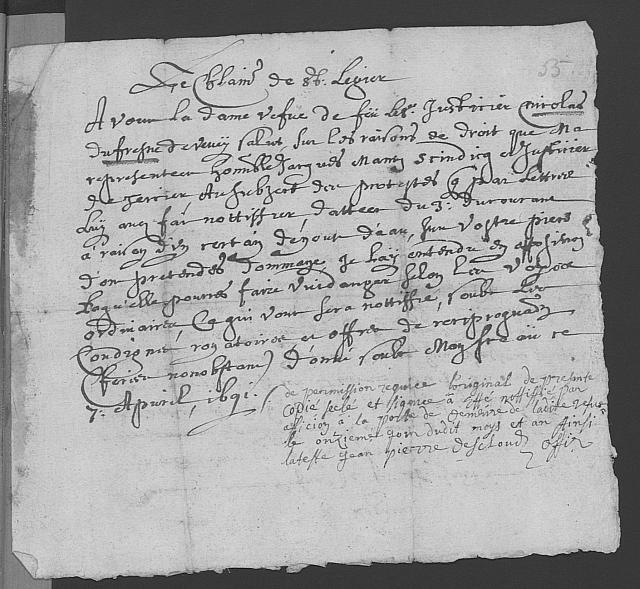 Le Chlain de St. Legier
55
A vous la dame vefue de feu le Sr. Justicier nicolas
dufresne de vevey salut, sur les raisons de droit que Ma
representees honble Jacques Mamin Scindicq et Justicier
de Au Subject des protestes q par lettre
luy avez fait nottiffier, dattees du 3e. du courant
a raison d'un certain d'eau, sur vostre piece
d'on pretendes dommage Je l'ay entendu en opposition
Laquelle pourres faire vuidanger selon les us
ordinaires, Ce qui vous sera nottiffié, soubs les
Condions rogatoires et offres de reciproquation
(feries nonobstant) Donné soubs Mon sceau ce
7e. Apvril, 1691.
de permission requise l'original de presente
Copie selé et signée a esté nottiffié par
afficion a la porte de demeure de ladite vefve
le onzieme jour dudit moys et an Ainsi
lateste Jean pierre descloud offir